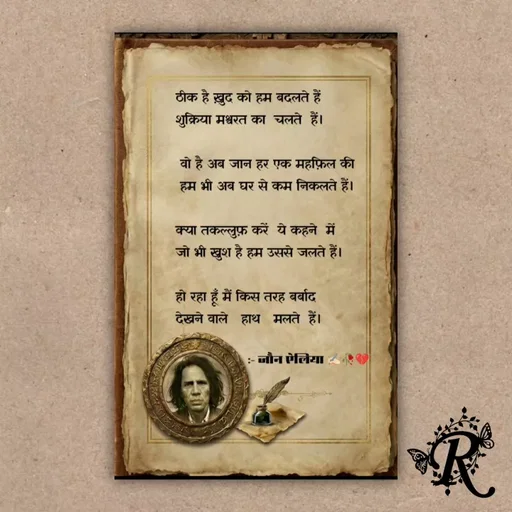 ठीक है ख़ुद को हम बदलते हैं
शुक्रिया मश्वरत का चलते हैं।
वो है अब जान हर एक महफ़िल की
हम भी अब घर से कम निकलते हैं।
क्या तकल्लुफ़ करें ये कहने में
जो भी खुश है हम उससे जलते हैं।
हो रहा हूँ मैं किस तरह बर्बाद
देखने वाले हाथ मलते हैं।
:- जौन ऐलिया ✍🏻🥀💔
R